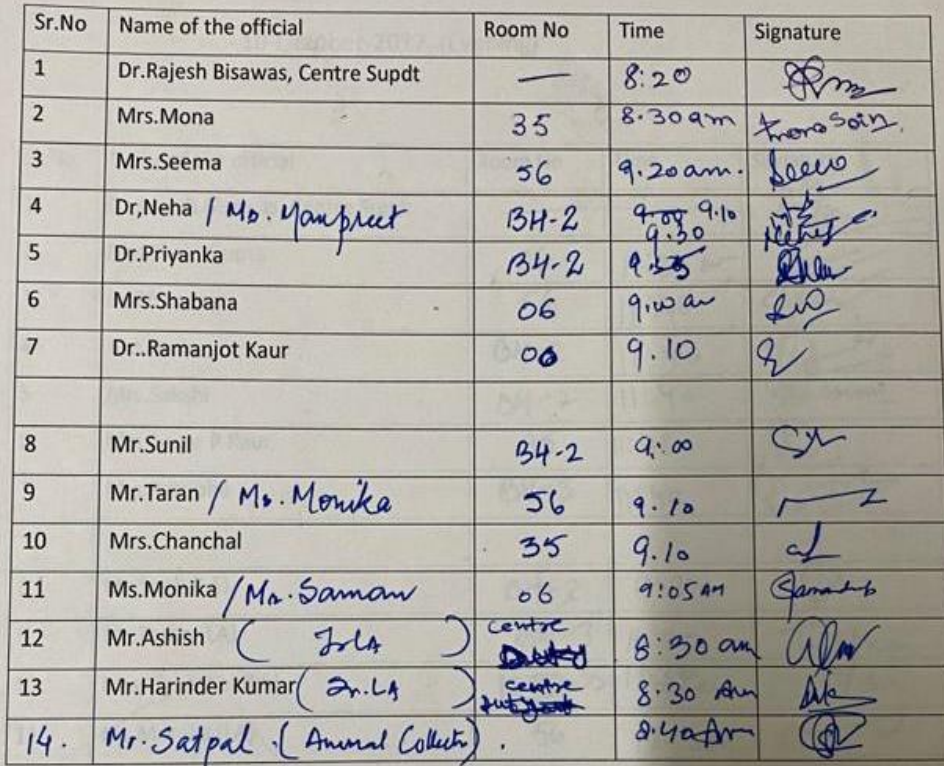 Sr.No Name of the official Room No Time Signature
1 Dr.Rajesh Bisawas, Centre Supdt — 8:20
2 Mrs.Mona 35 8.30am Mona Soin.
3 Mrs.Seema 56 9.20am. Seema
4 Dr,Neha / Ms. Manpreet BH-2 9.10
9.30
5 Dr.Priyanka BH-2
6 Mrs.Shabana 06 9.10 am
7 Dr..Ramanjot Kaur 06 9.10
8 Mr.Sunil BH-2 9:00
9 Mr.Taran / Ms. Monika 56 9.10
10 Mrs.Chanchal 35 9.10
11 Ms.Monika / Mr. Saman 06 9:05 AM
12 Mr.Ashish ( Jr LA ) centre 8:30 am
13 Mr.Harinder Kumar ( Jr. LA ) centre 8.30 Am
14. Mr. Satpal . ( Animal Collectr) . 8.40 Am